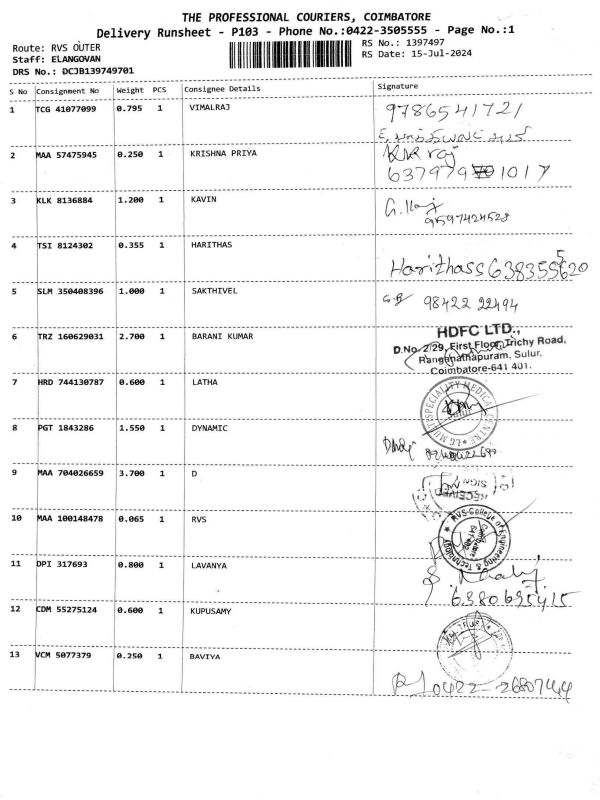 THE PROFESSIONAL COURIERS, COIMBATORE
Delivery Runsheet - P103 - Phone No.:0422-3505555 - Page No.:1
Route: RVS OUTER
RS No.: 1397497
Staff: ELANGOVAN
RS Date: 15-Jul-2024
DRS No.: DCJB139749701
S No Consignment No Weight PCS Consignee Details Signature
1 TCG 41077099 0.795 1 VIMALRAJ 9786541721
2 MAA 57475945 0.250 1 KRISHNA PRIYA KK raj
637979 1017
3 KLK 8136884 1.200 1 KAVIN
9597424528
4 TSI 8124302 0.355 1 HARITHAS Harithass
5 SLM 350408396 1.000 1 SAKTHIVEL 98422 22494
6 TRZ 160629031 2.700 1 BARANI KUMAR HDFC LTD.,
D.No. 2/29, First Floor, Trichy Road,
Ranganathapuram, Sulur,
Coimbatore-641 401.
7 HRD 744130787 0.600 1 LATHA LG MULTISPECIALITY MEDICAL CENTRE
Sulur
8 PGT 1843286 1.550 1 DYNAMIC
9 MAA 704026659 3.700 1 D RECEIVED
SIGN
10 MAA 100148478 0.065 1 RVS RVS-College of Engineering & Technology
Coimbatore
641 402
11 DPI 317693 0.800 1 LAVANYA
6380695415
12 CDM 55275124 0.600 1 KUPUSAMY
13 VCM 5077379 0.250 1 BAVIYA 0422-2680744